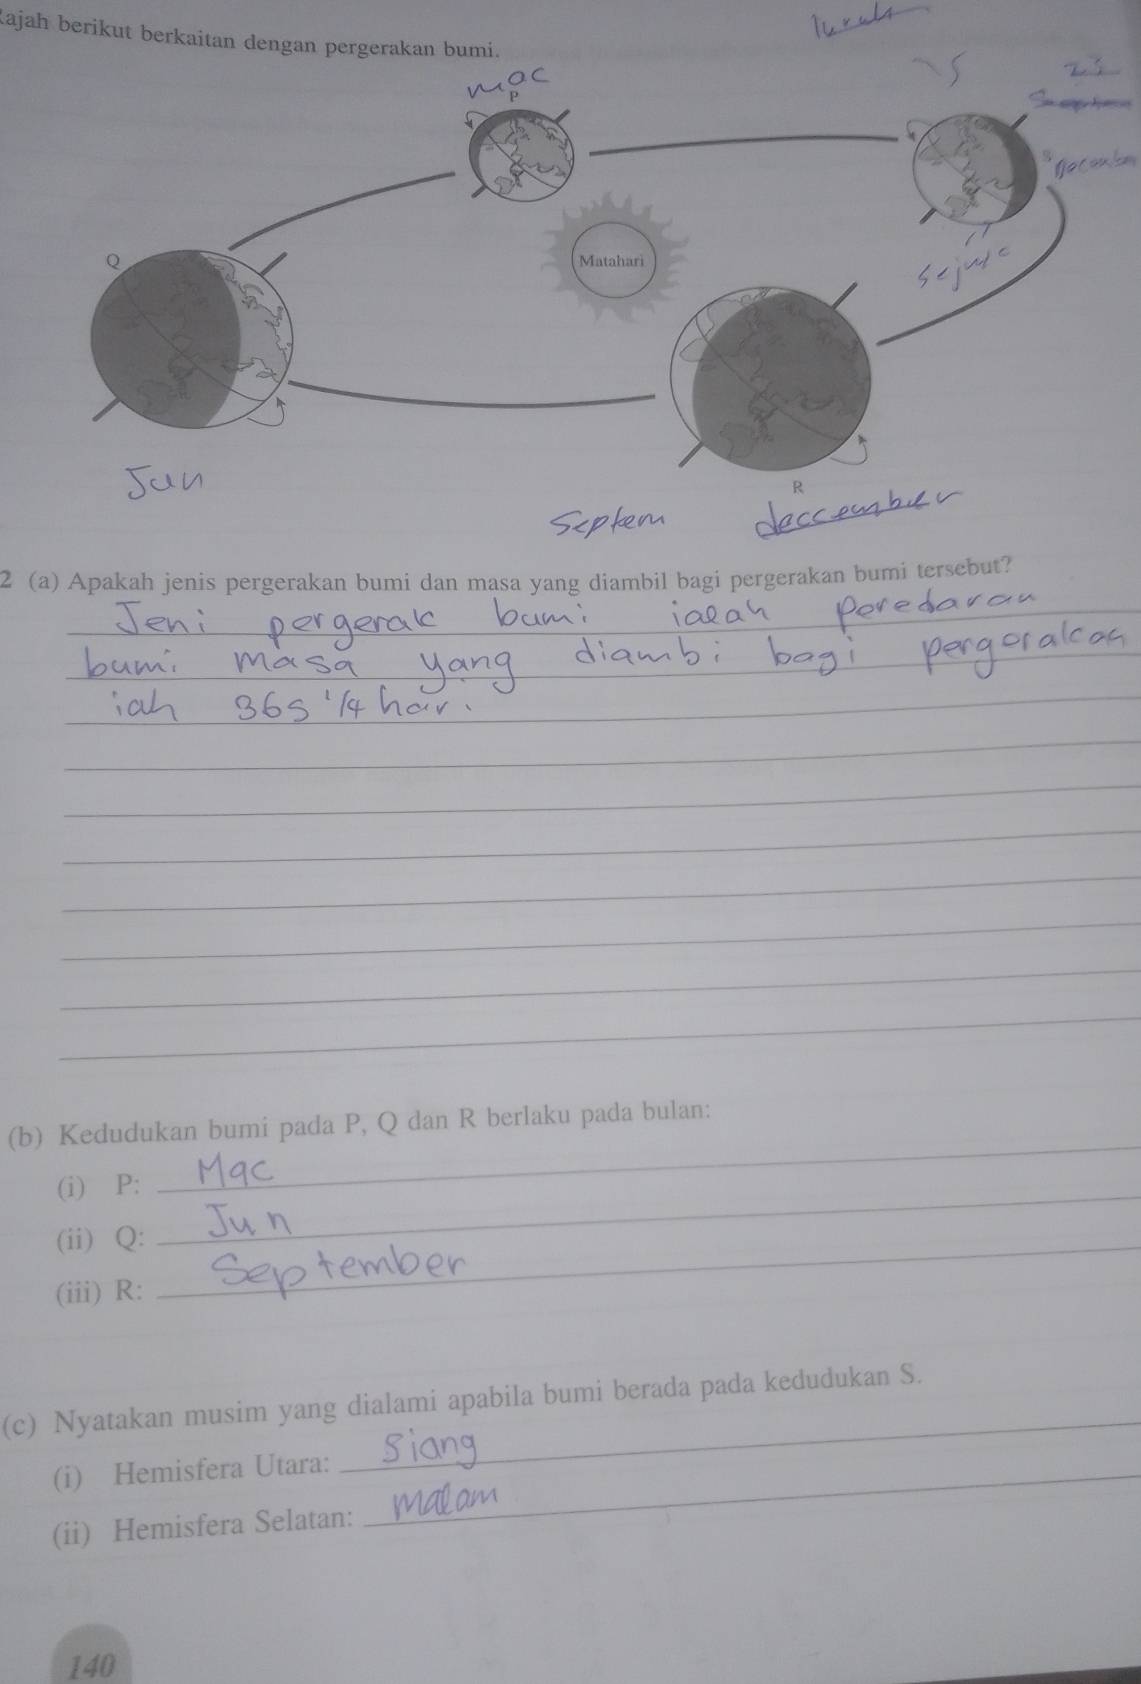 Rajah berikut berkaitan dengan pergerakan bumi.
mac
P
23
S
Decamber
Sejuk
Q
Matahari
Jun
R
Septem
deccember
2 (a) Apakah jenis pergerakan bumi dan masa yang diambil bagi pergerakan bumi tersebut?
Jeni pergerak bumi ialah peredaran
bumi masa yang diambi bagi pergeralcan
iah 365 1/4 hari.
(b) Kedudukan bumi pada P, Q dan R berlaku pada bulan:
(i) P: Mac
(ii) Q: Jun
(iii) R: September
(c) Nyatakan musim yang dialami apabila bumi berada pada kedudukan S.
(i) Hemisfera Utara: Siang
(ii) Hemisfera Selatan: malam
140